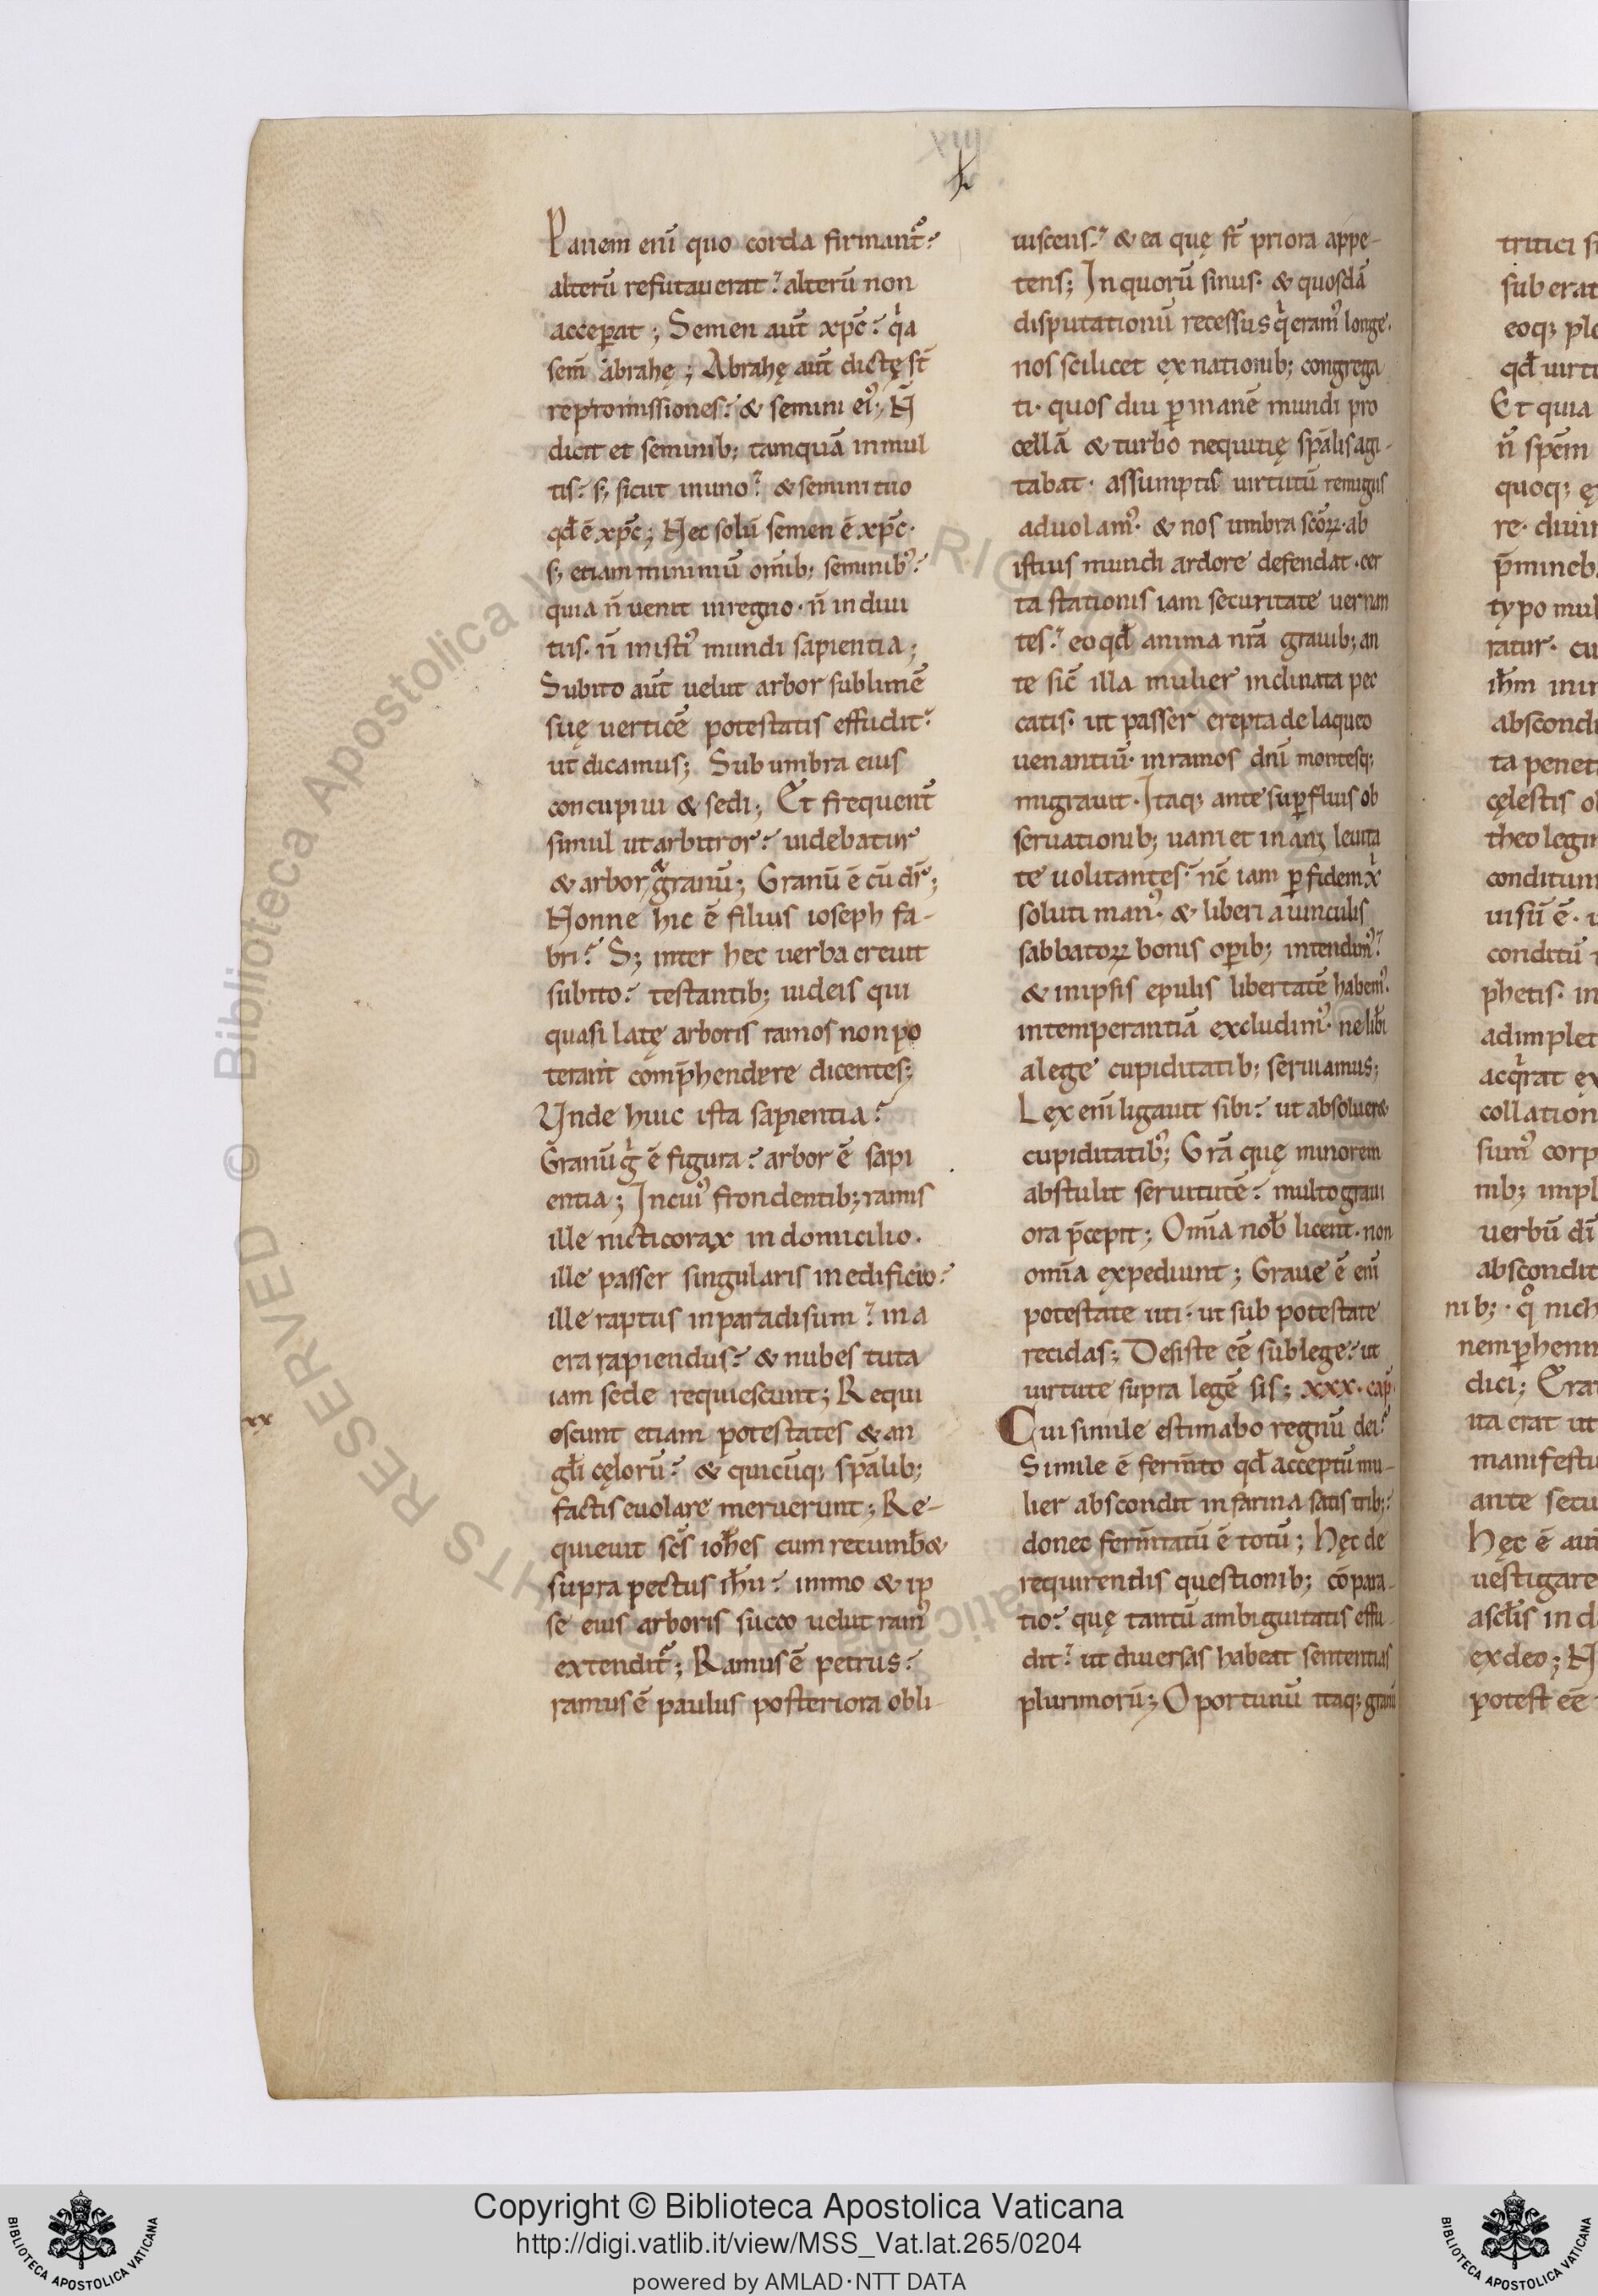 xiii
Panem enī quo corda firmant᷑?
alterū refutauerat? alterū non
acceperat; Semen aut̄ xp̄c? qͥa
sem̄ abrahę; Abrahę aut̄ dictę st̄
repromissiones? & semini eiꝰ; N̄
dicit et seminib; tamquā in mul
tis? s; sicut in uno? & semini tuo
qđ ē xp̄c; Nec solū semen ē xp̄c·
s; etiam minimū om̄ib; seminibꝰ?
quia n̄ uenit in regno· n̄ in diui
tiis· n̄ in istiꝰ mundi sapientia;
Subito aut̄ uelut arbor sublimē
suę verticē potestatis effudit?
ut dicamus; Sub umbra eius
concupiui & sedi; Et frequent̄
simul ut arbitror? uidebatur
& arbor, & granū; Granū ē cū dr̄;
Nonne hic ē filius ioseph fa-
bri? S; inter hec uerba creuit
subito? testantib; iudeis qui
quasi latę arboris ramos non po
terant comp̄hendere dicentes;
Unde huic ista sapientia?
Granū gͥ ē figura? arbor ē sapi
entia; In cuiꝰ frondentib; ramis
ille nicticorax in domicilio·
ille passer singularis in edificio?
ille raptus in paradisum? in a
era rapiendus? & nubes tuta
iam sede requiescunt; Requi
escunt etiam potestates & an
gl̄i cęlorū? & quicūq; sp̄alib;
factis euolare meruerunt; Re-
quieuit sc̄s ioh̄es cum recumb&
supra pectus ih̄u? immo & ip
se eius arboris succo uelut ramꝰ
extendit᷑; Ramus ē petrus?
ramus ē paulus posteriora obli-
xx
uiscens? & ea quę st̄ priora appe-
tens; In quorū sinus· & quosdā
disputationū recessus qͥ eramꝰ longe·
nos scilicet ex nationib; congrega
ti· quos diu p̱ inanē mundi pro
cellā & turbo nequitię sp̄alis agi-
tabat· assumptis uirtutū remigiis
aduolamꝰ· & nos umbra sc̄oꝝ· ab
istius mundi ardore defendat· cer
ta stationis iam securitate uernan
tes? eo qđ anima nr̄a grauib; an
te sic̄ illa mulier inclinata pec
catis· ut passer erepta de laqueo
uenantiū· in ramos dn̄i montesq;
migrauit· Itaq; ante sup̱fluis ob
seruationib; uani et in anj leuita
te uolitantes? nc̄ iam p̱ fidem xͥ
soluti manꝰ· & liberi a uinculis
sabbatoꝝ bonis op̱ib; intendimꝰ?
& in ipsis epulis libertatē habemꝰ·
intemperantiā excludimꝰ· ne lib̄i
a lege cupiditatib; seruiamus;
Lex eni ligauit sibi? ut absoluer&
cupiditatibꝰ; Gr̄a quę minorem
abstulit seruitutē? multo graui
ora p̄cepit; Om̄ia nob̄ licent· non
omīa expediunt; Graue ē enī
potestate uti· ut sub potestate
recidas; Desiste eē sub lege? ut
uirtute supra legē sis; xxx· cap̄·
Cui simile estimabo regnū dei?
Simile ē ferm̄to qđ acceptū mu-
lier abscondit in farina satis trib;?
donec ferm̄tatū ē totū; Hęc de
requirendis questionib; cōpara-
tio? quę tantū ambiguitatis effu-
dit? ut diuersas habeat sententias
plurimorū; Oportunū itaq; granū
tritici si
sub erat
eoq; plo
qđ uirtu
Et quia
n̄ spēm
quoq; ę
re· diuin
p̄mineb
typo mul
ratur· cu
ih̄m min
abscondi
ta penet
cęlestis o
theo legi
conditum
uisū ē· u
conditū
phetis· in
adimplet
acqͥrat ex
collation
sumꝰ corp
nib; impl
verbū dī
abscondit
nib;· qͦ nich
nem p̱henn
dici; Erat
ita erat ut
manifestu
ante secu
Hęc ē aut
uestigare
ascl̄is in d
ex deo; N
potest eē
© Biblioteca Apostolica Vaticana ALL RIGHTS RESERVED
Copyright © Biblioteca Apostolica Vaticana
http://digi.vatlib.it/view/MSS_Vat.lat.265/0204
powered by AMLAD·NTT DATA
BIBLIOTECA APOSTOLICA VATICANA
BIBLIOTECA APOSTOLICA VATICANA